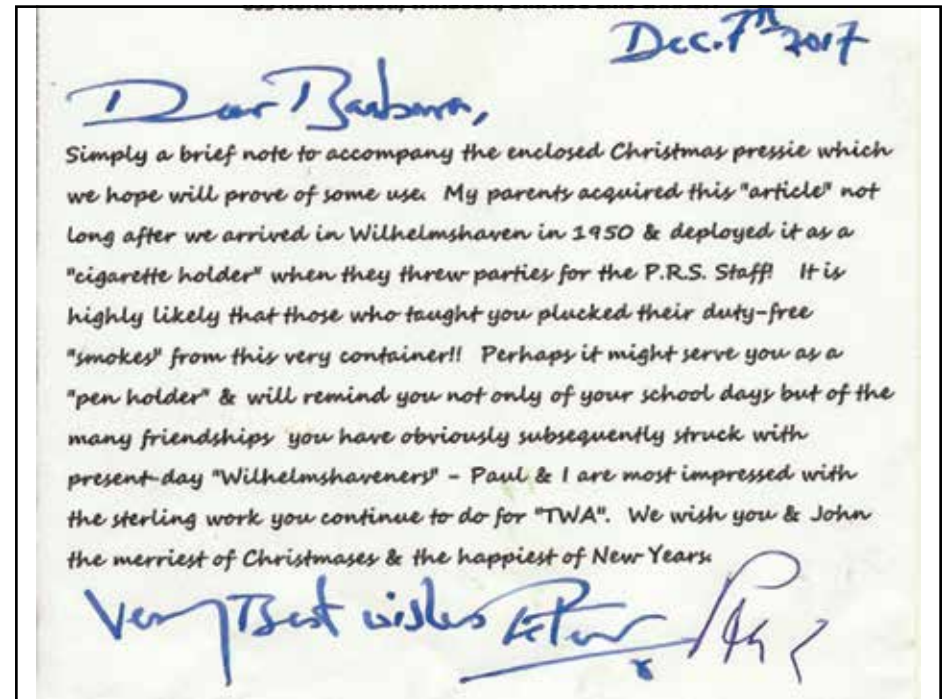 Dec. 7th 2017
Dear Barbara,
Simply a brief note to accompany the enclosed Christmas pressie which
we hope will prove of some use. My parents acquired this "article" not
long after we arrived in Wilhelmshaven in 1950 & deployed it as a
"cigarette holder" when they threw parties for the P.R.S. Staff! It is
highly likely that those who taught you plucked their duty-free
"smokes" from this very container!! Perhaps it might serve you as a
"pen holder" & will remind you not only of your school days but of the
many friendships you have obviously subsequently struck with
present-day "Wilhelmshaveners" - Paul & I are most impressed with
the sterling work you continue to do for "TWA". We wish you & John
the merriest of Christmases & the happiest of New Years.
Very Best wishes Peter x